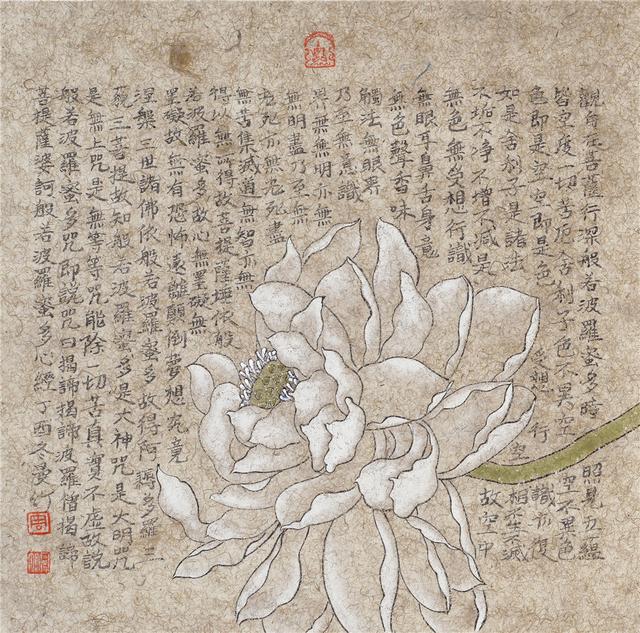 觀自在菩薩行深般若波羅蜜多時照見五蘊
皆空度一切苦厄舍利子色不異空空不異色
色即是空空即是色受想行識亦復
如是舍利子是諸法空相不生不滅
不垢不淨不增不減是故空中
無色無受想行識
無眼耳鼻舌身意
無色聲香味
觸法無眼界
乃至無意識
界無無明亦無
無明盡乃至無
老死亦無老死盡
無苦集滅道無智亦無
得以無所得故菩提薩埵依般
若波羅蜜多故心無罣礙無
罣礙故無有恐怖遠離顛倒夢想究竟
涅槃三世諸佛依般若波羅蜜多故得阿耨多羅三
藐三菩提故知般若波羅蜜多是大神咒是大明咒
是無上咒是無等等咒能除一切苦真實不虛故說
般若波羅蜜多咒即說咒曰揭諦揭諦波羅僧揭諦
菩提薩婆訶般若波羅蜜多心經丁酉冬曼竹
周